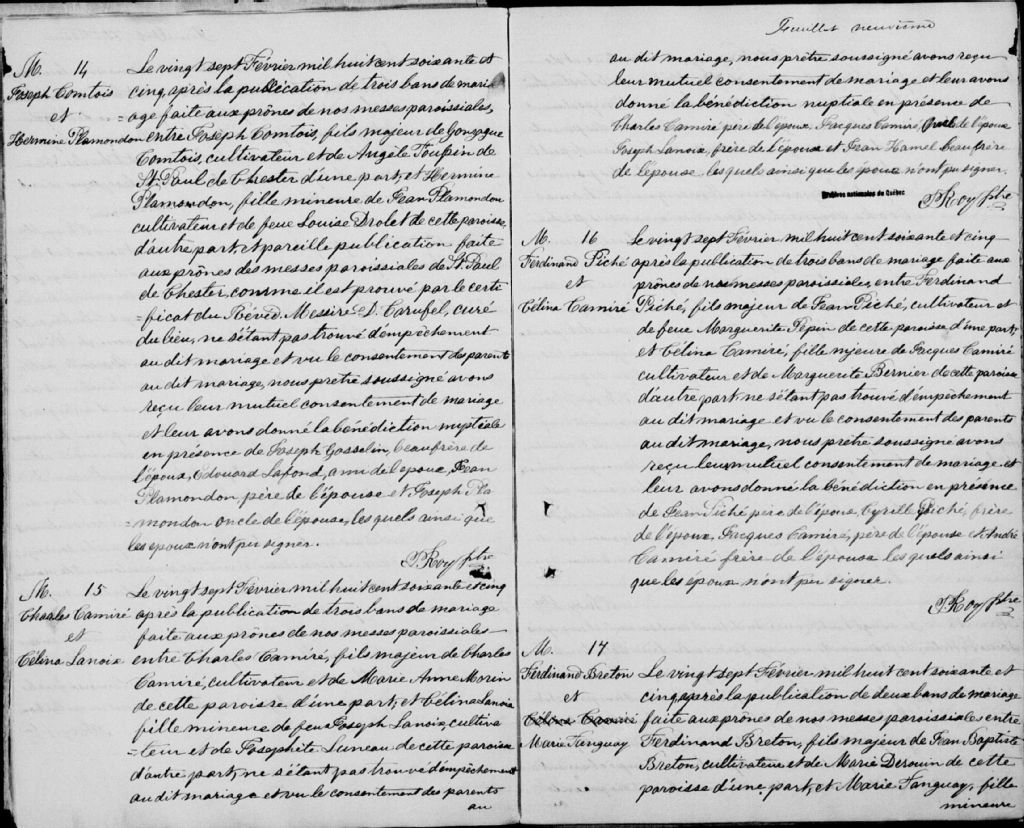 M. 14
Joseph Comtois
et
Hermine Plamondon
Le vingt sept Février mil huit cent soixante et
cinq, après la publication de trois bans de mari
=age faite aux prônes de nos messes paroissiales,
entre Joseph Comtois, fils majeur de Gonzague
Comtois, cultivateur et de Angèle Toupin de
St. Paul de Chester d'une part, et Hermine
Plamondon, fille mineure de Jean Plamondon
cultivateur et de feue Louise Drolet de cette paroisse,
d'autre part, et pareille publication faite
aux prônes des messes paroissiales de St. Paul
de Chester, comme il est prouvé par le certi
=ficat du Révéd. Messire D. Carufel, curé
du lieu, ne s'étant pas trouvé d'empêchement
au dit mariage et vu le consentement des parents
au dit mariage, nous prêtre soussigné avons
reçu leur mutuel consentement de mariage
et leur avons donné la bénédiction nuptiale
en présence de Joseph Gosselin, beaufrère de
l'époux, Edouard Lafond, ami de l'époux, Jean
Plamondon, père de l'épouse et Joseph Pla
=mondon oncle de l'épouse, les quels ainsi que
les epoux n'ont pu signer.
P. Roy ptre
M. 15
Charles Camiré
et
Célina Lanoix
Le vingt sept Février mil huit cent soixante et cinq
après la publication de trois bans de mariage
faite aux prônes de nos messes paroissiales
entre Charles Camiré, fils majeur de Charles
Camiré, cultivateur et de Marie Anne Morin
de cette paroisse d'une part, et Célina Lanoix
fille mineure de feu Joseph Lanoix, cultiva
=teur et de Josephte Luneau de cette paroisse
d'autre part, ne s'étant pas trouvé d'empêchement
au dit mariage et vu le consentement des parents
au
Feuillet neuvième
au dit mariage, nous prêtre soussigné avons reçu
leur mutuel consentement de mariage et leur avons
donné la bénédiction nuptiale en présence de
Charles Camiré père de l'époux, Jacques Camiré de l'époux
Joseph Lanoix, frère de l'épouse et Jean Hamel beaufrère
de l'épouse, les quels ainsi que les époux n'ont pu signer.
Archives nationales du Québec
P. Roy ptre
M. 16
Ferdinand Piché
et
Célina Camiré
Le vingt sept Février, mil huit cent soixante et cinq
après la publication de trois bans de mariage faite aux
prônes de nos messes paroissiales, entre Ferdinand
Piché, fils majeur de Jean Piché, cultivateur et
de feue Marguerite Pepin de cette paroisse d'une part,
et Célina Camiré, fille mjeure de Jacques Camiré
cultivateur et de Marguerite Bernier de cette paroisse
d'autre part, ne s'étant pas trouvé d'empêchement
au dit mariage et vu le consentement des parents
au dit mariage, nous prêtre soussigné avons
reçu leur mutuel consentement de mariage et
leur avons donné la bénédiction en présence
de Jean Piché père de l'époux, Cyrille Piché, frère
de l'époux, Jacques Camiré, père de l'épouse et André
Camiré frère de l'épouse les quels ainsi
que les époux n'ont pu signer.
P. Roy ptre
M. 17
Ferdinand Breton
et
Célina Camiré
Marie Tanguay
Le vingt sept Février mil huit cent soixante et
cinq, après la publication de deux bans de mariage
faite aux prônes de nos messes paroissiales entre
Ferdinand Breton, fils majeur de Jean Baptiste
Breton, cultivateur et de Marie Derouin de cette
paroisse d'une part, et Marie Tanguay, fille
mineure